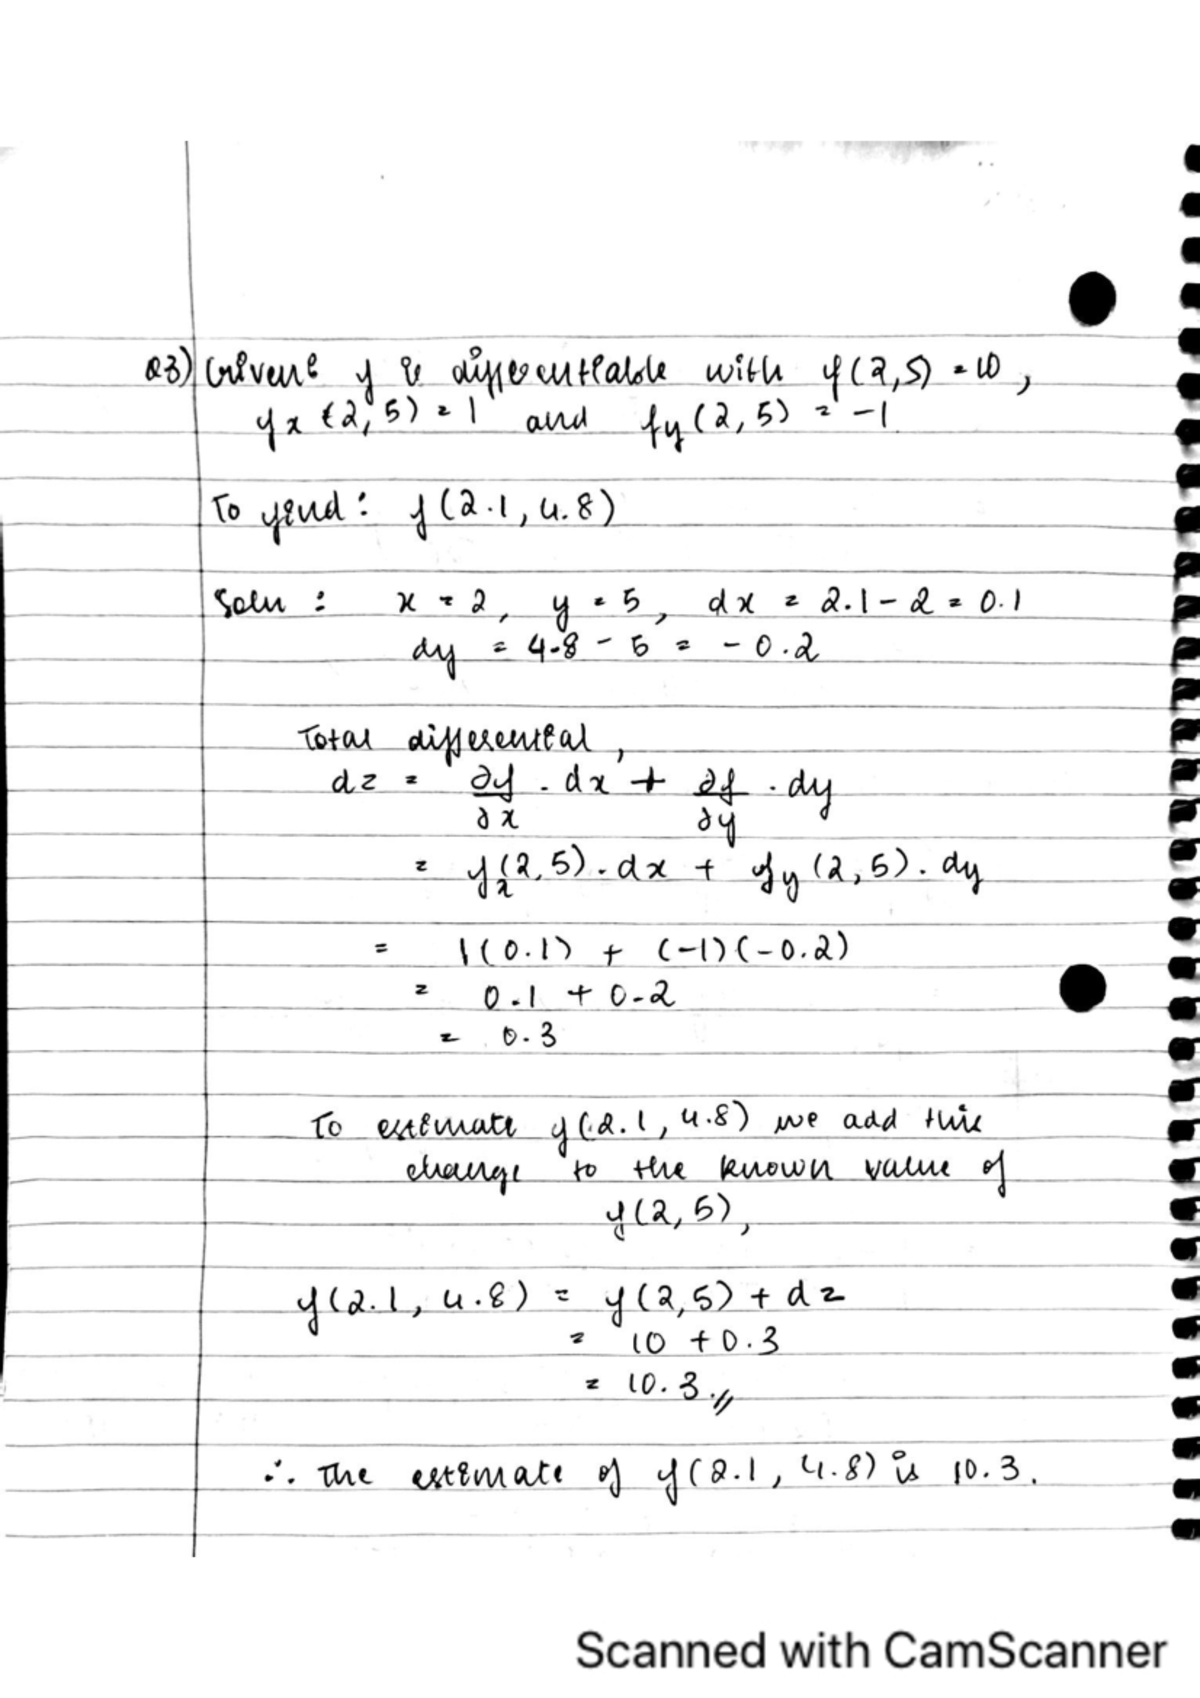 Q3) Given: f is differentiable with f(2,5) = 10,
fx (2,5) = 1 and fy (2,5) = -1
To find: f(2.1, 4.8)
Soln : x = 2, y = 5, dx = 2.1 - 2 = 0.1
dy = 4.8 - 5 = - 0.2
Total differential,
dz = ∂f/∂x . dx + ∂f/∂y . dy
= fx(2,5) . dx + fy (2,5) . dy
= 1(0.1) + (-1)(-0.2)
= 0.1 + 0.2
= 0.3
To estimate f(2.1, 4.8) we add this
change to the known value of
f(2,5),
f(2.1, 4.8) = f(2,5) + dz
= 10 + 0.3
= 10.3.//
∴ The estimate of f(2.1, 4.8) is 10.3.
Scanned with CamScanner